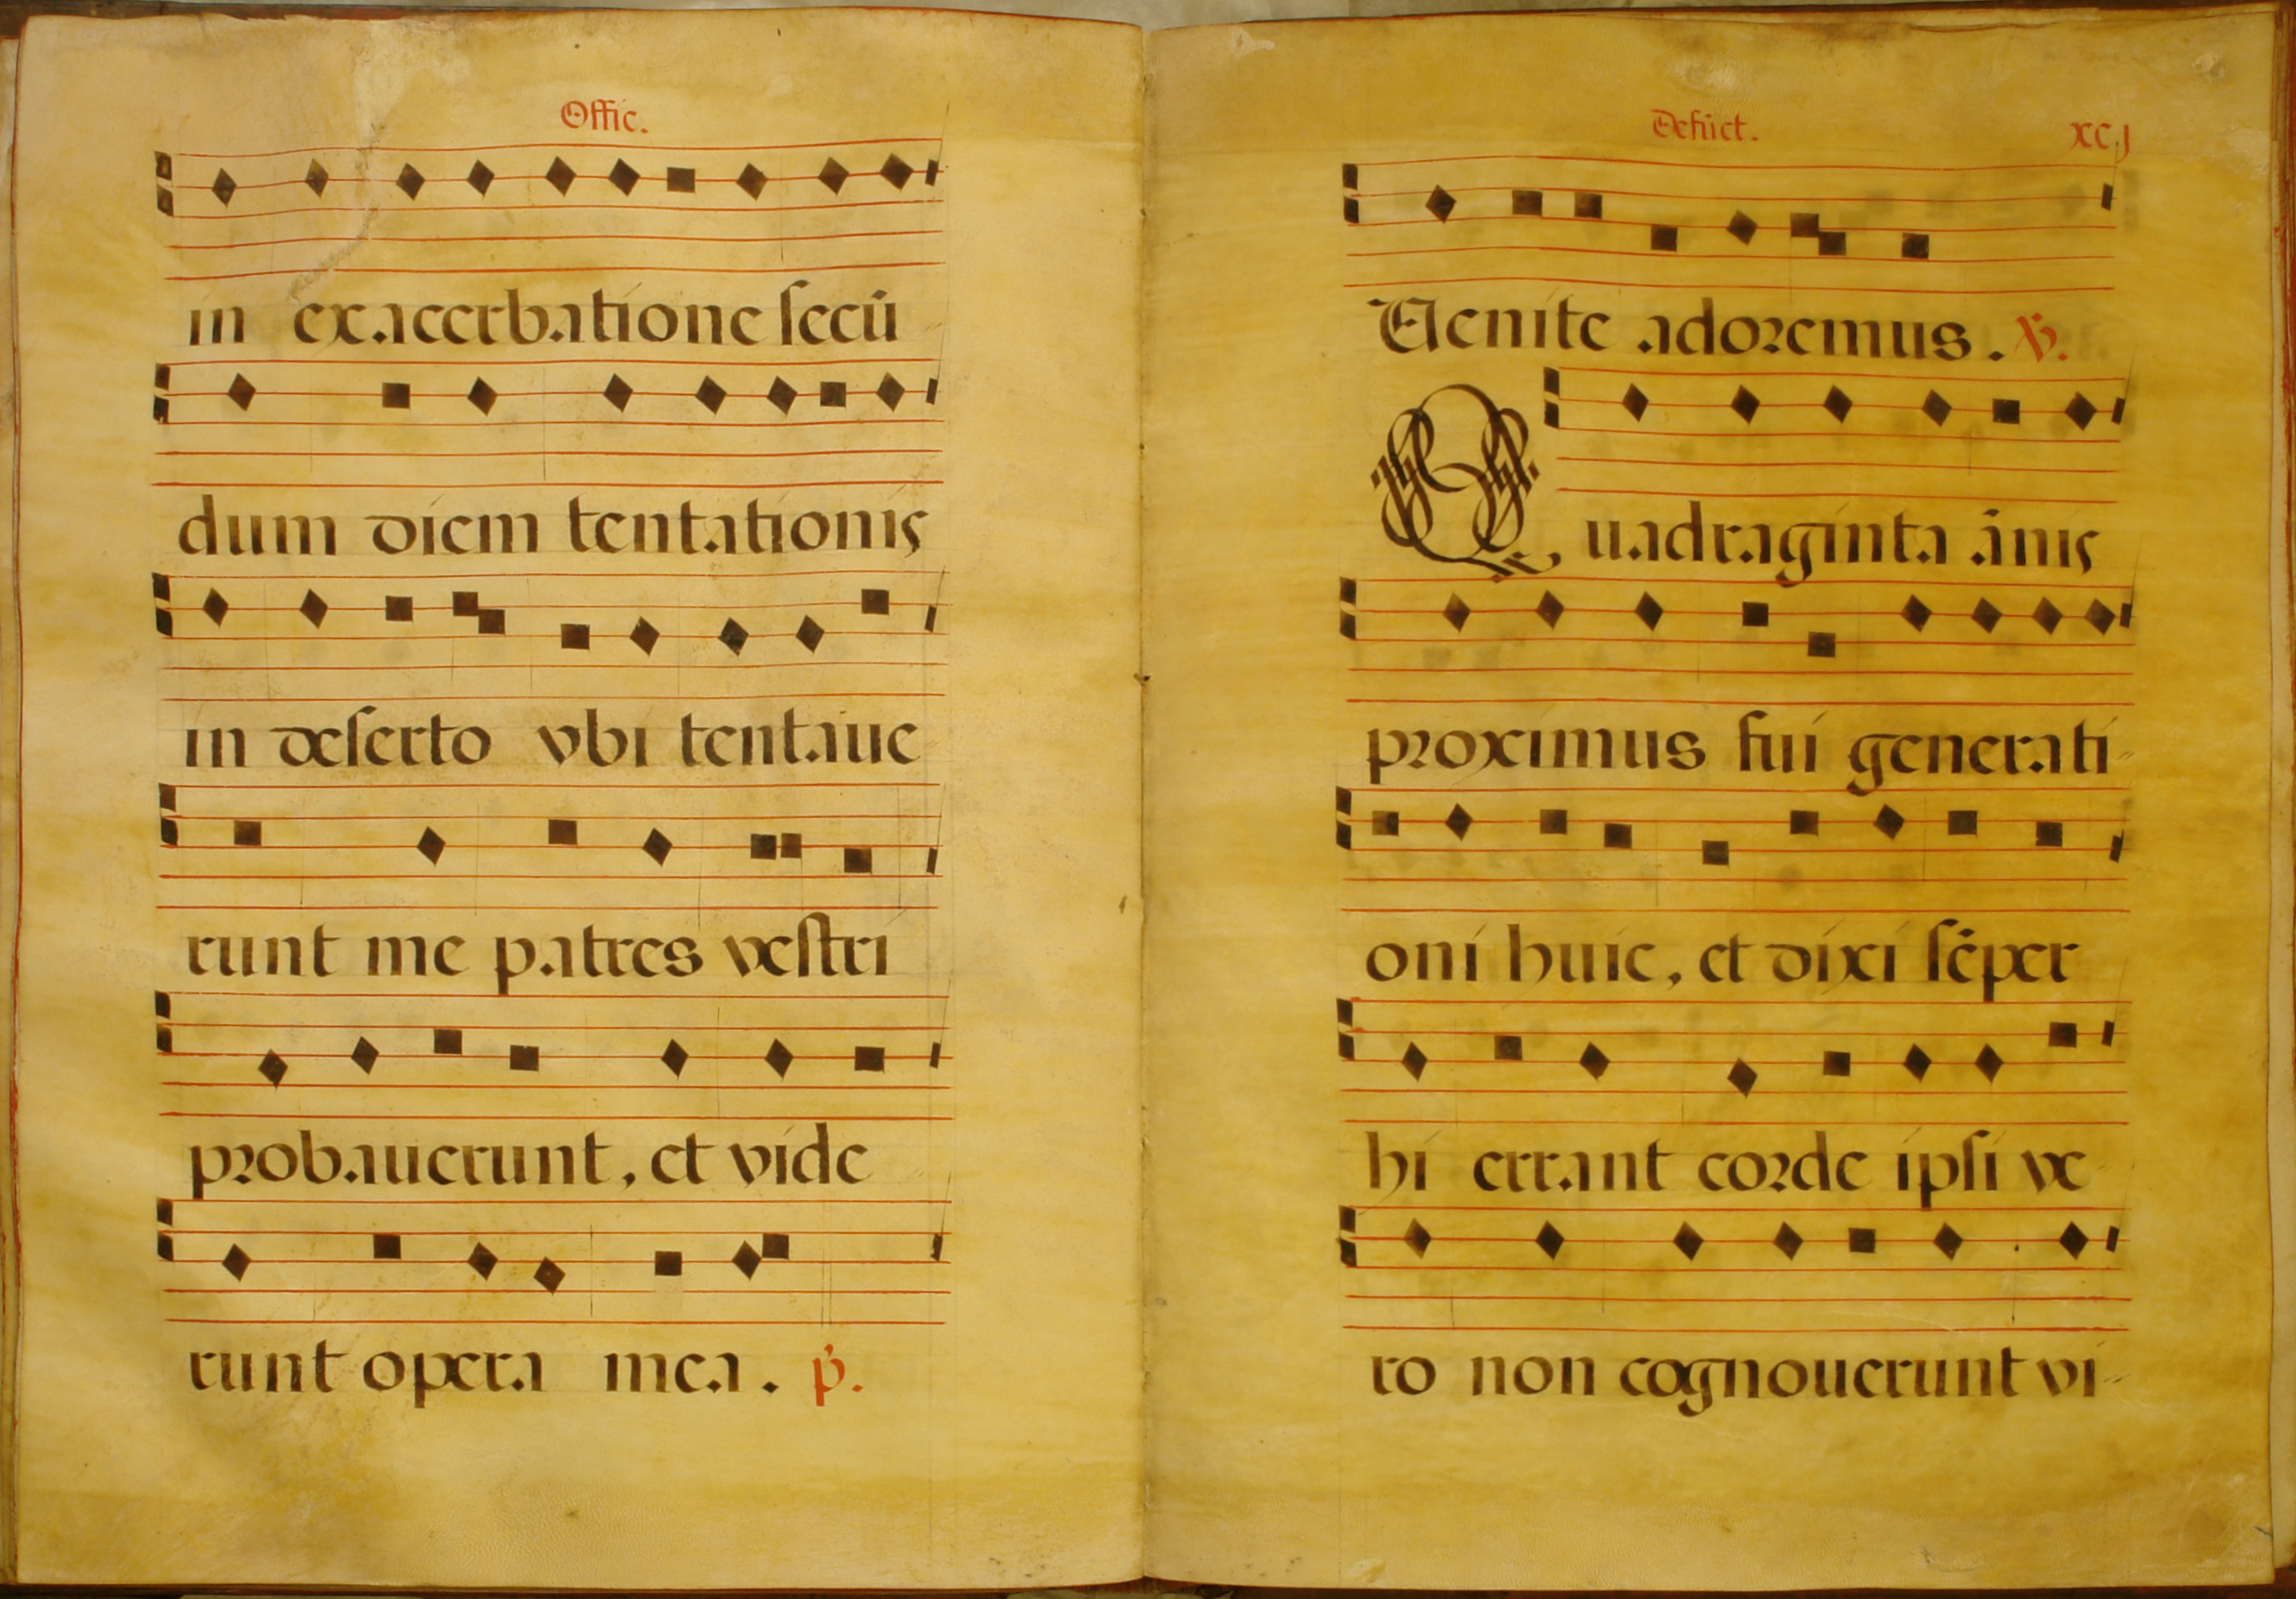 Offic.
in exacerbatione secū
dum diem tentationis
in deserto vbi tentaue
runt me patres vestri
probauerunt, et vide
runt opera mea. p̄.
Defūct. xcj
Uenite adoremus. ℣.
Quadraginta ānis
proximus fui generati-
oni huic, et dixi sēper
hi errant corde ipsi ve
ro non cognouerunt vi-